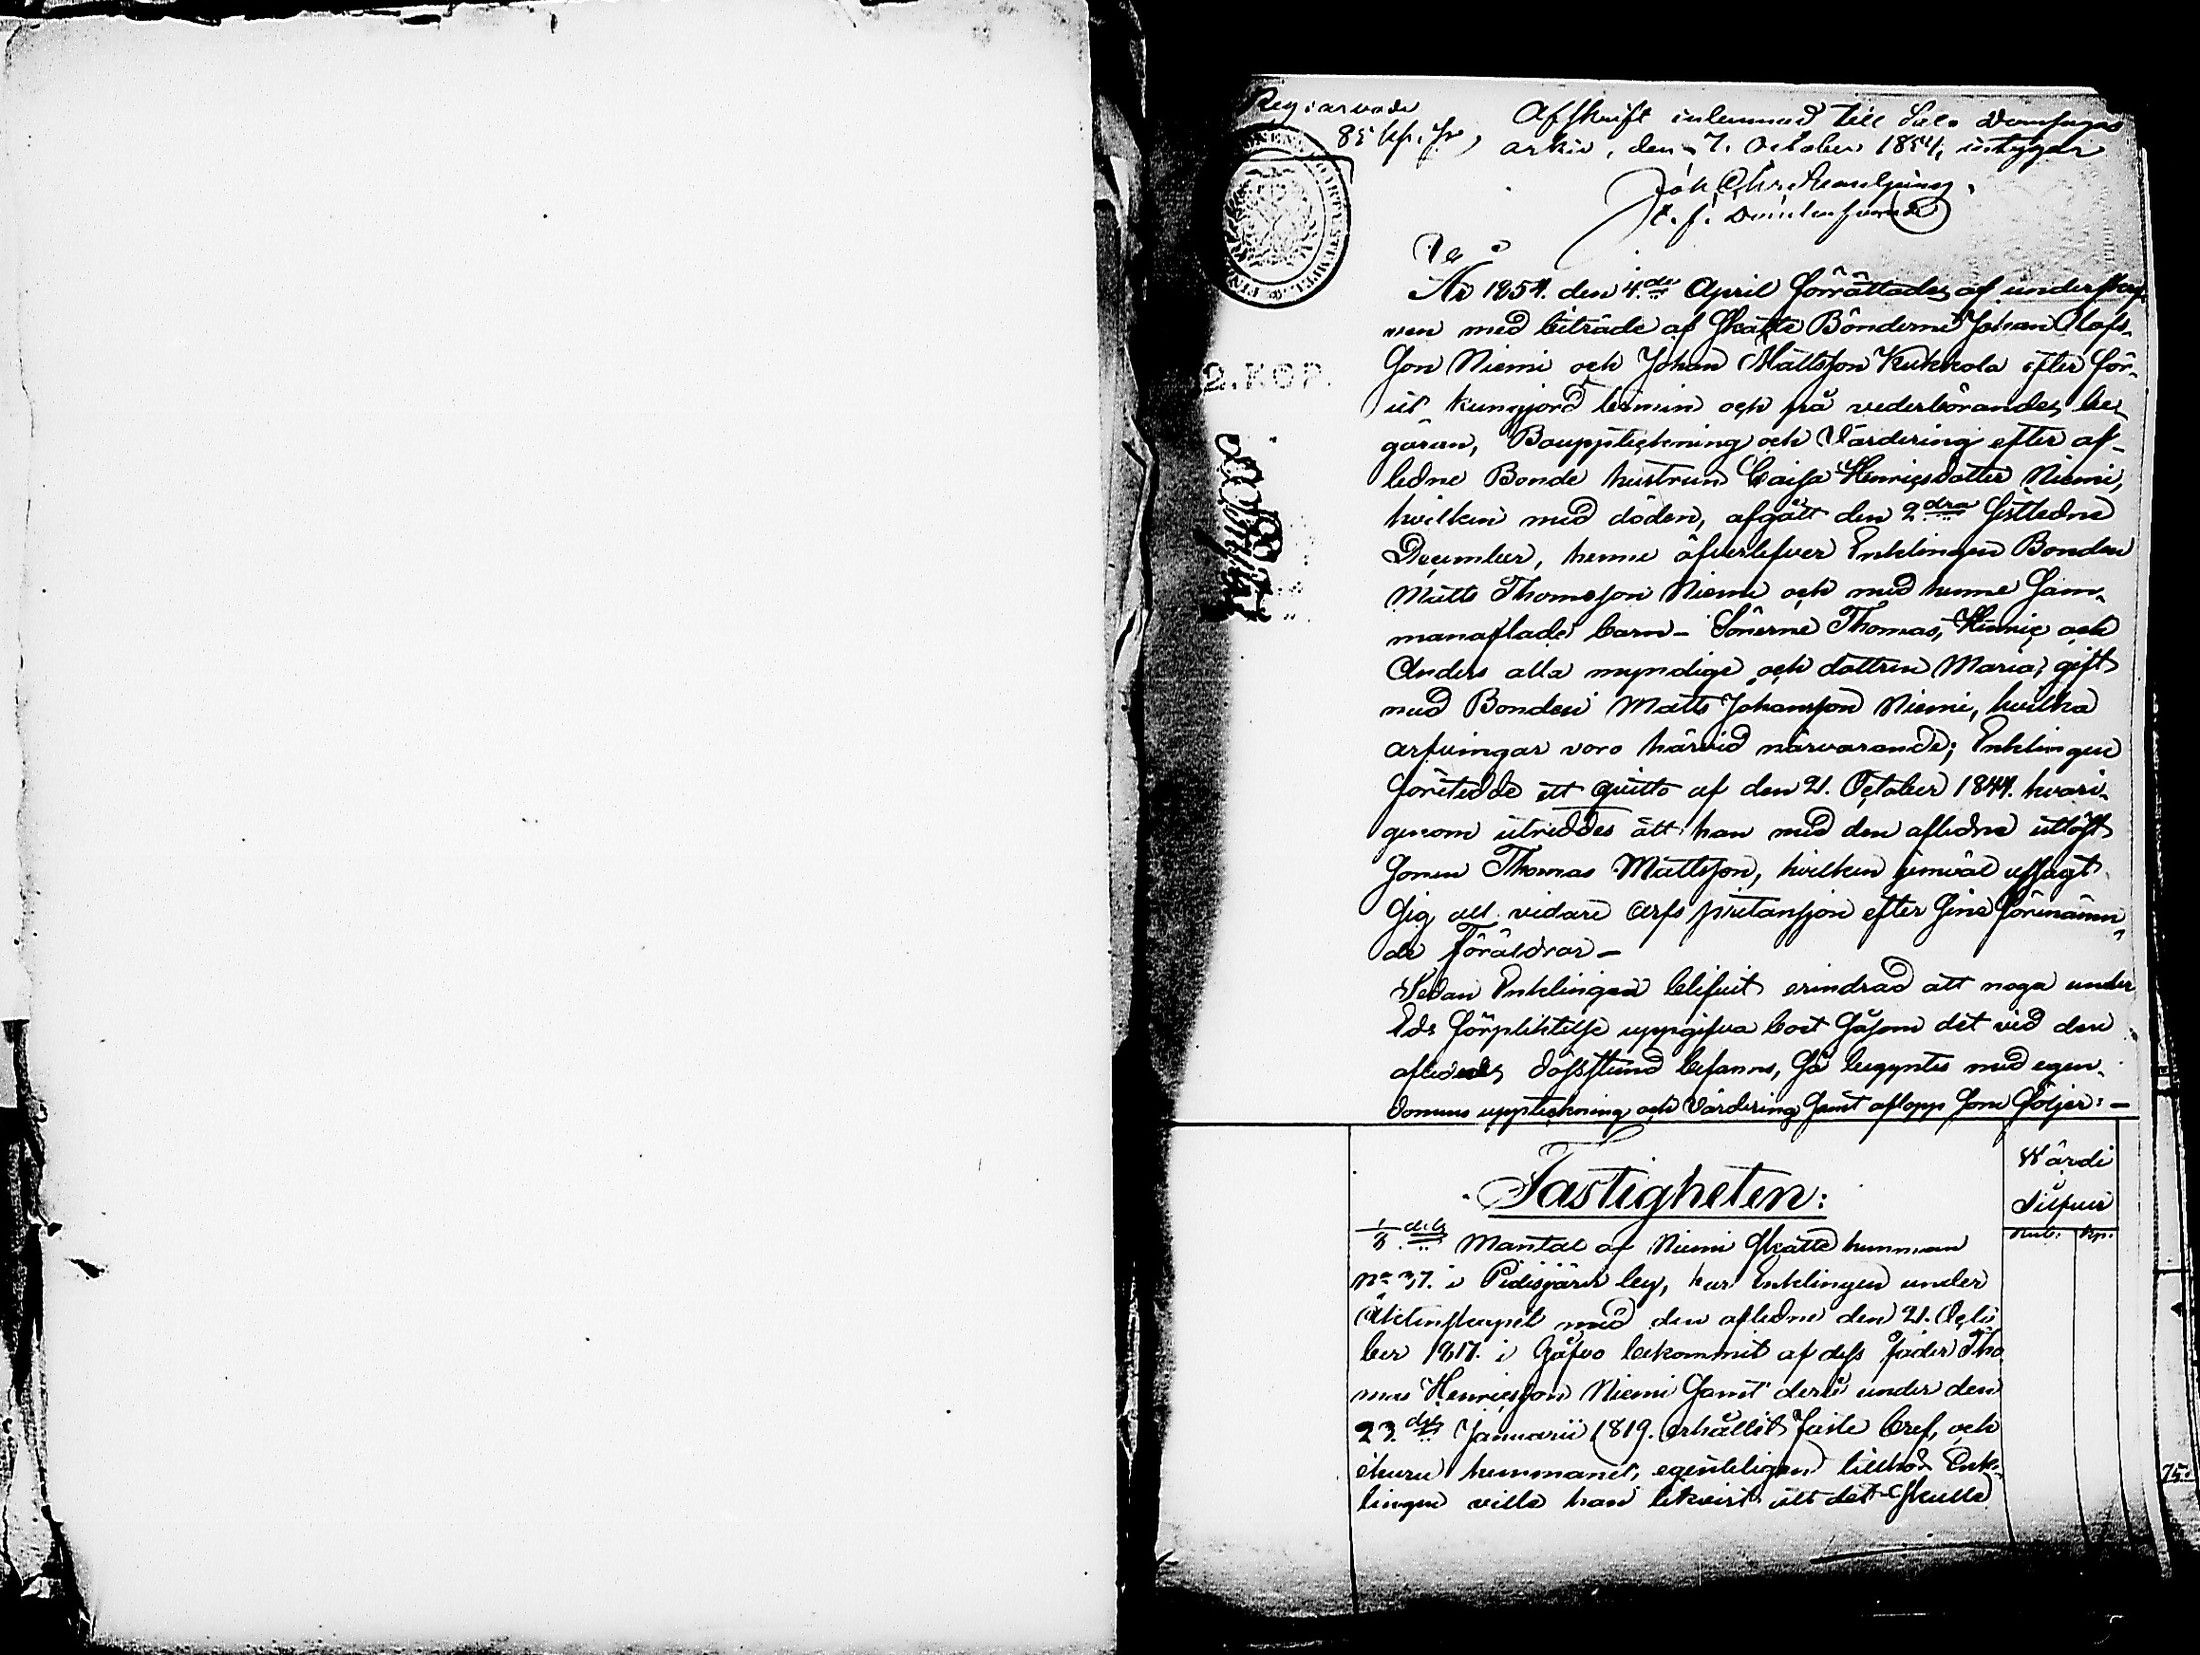 85 kop. Sr,
Afskrift inlemnad till Salo Domsagas
arkiv, den 7. October 1854, intygar
2.KOP.
År 1854. den 4.de April förrättades af underskref-
ven med biträde af Skatte Bönderne Johan Olofs-
son Niemi och Johan Mattsson Kukkola efter för-
ut kungjord termin och på vederbörandes be-
gäran, Bouppteckning och Värdering efter af-
ledne Bonde hustrun Caisa Henricsdotter Niemi,
hvilken med döden, afgått den 2dra sistledne
December, henne öfverlefver Enklingen Bonden
Matts Thomasson Niemi och med henne sam-
manaflade barn - Sönerne Thomas, Henric och
Anders alla myndige och dottren Maria, gift
med Bonden Matts Johansson Niemi, hvilka
arfvingar voro härvid närvarande; Enklingen
företedde ett quitto af den 21. October 1844. hvari-
genom utreddes att han med den afledne utlöst
sonen Thomas Mattsson, hvilken jemväl afsagt
sig all vidare arfs pretansion efter sine förenämn-
de Föräldrar -
Sedan Enklingen blifvit erindrad att noga under
Eds förpliktelse uppgifva boet såsom det vid den
aflednes dödsstund befanns, så begyntes med egen-
domens uppteckning och Värdering samt aflopp som följer: -
Fastigheten:
Värde
Silfver
Rub. Kop.
1/8 dels Mantal af Niemi Skatte hemman
No 37. i Pidisjärvi by, har Enklingen under
Äktenskapet med den afledne den 21. Octo
ber 1817. i gåfvo bekommit af dess fader Tho
mas Henricsson Niemi samt derå under den
23.de Januarii 1819. erhållit faste bref, och
ehuru hemmanet, egenteligen tillhör Enk-
lingen ville han likväl att det skulle
75.